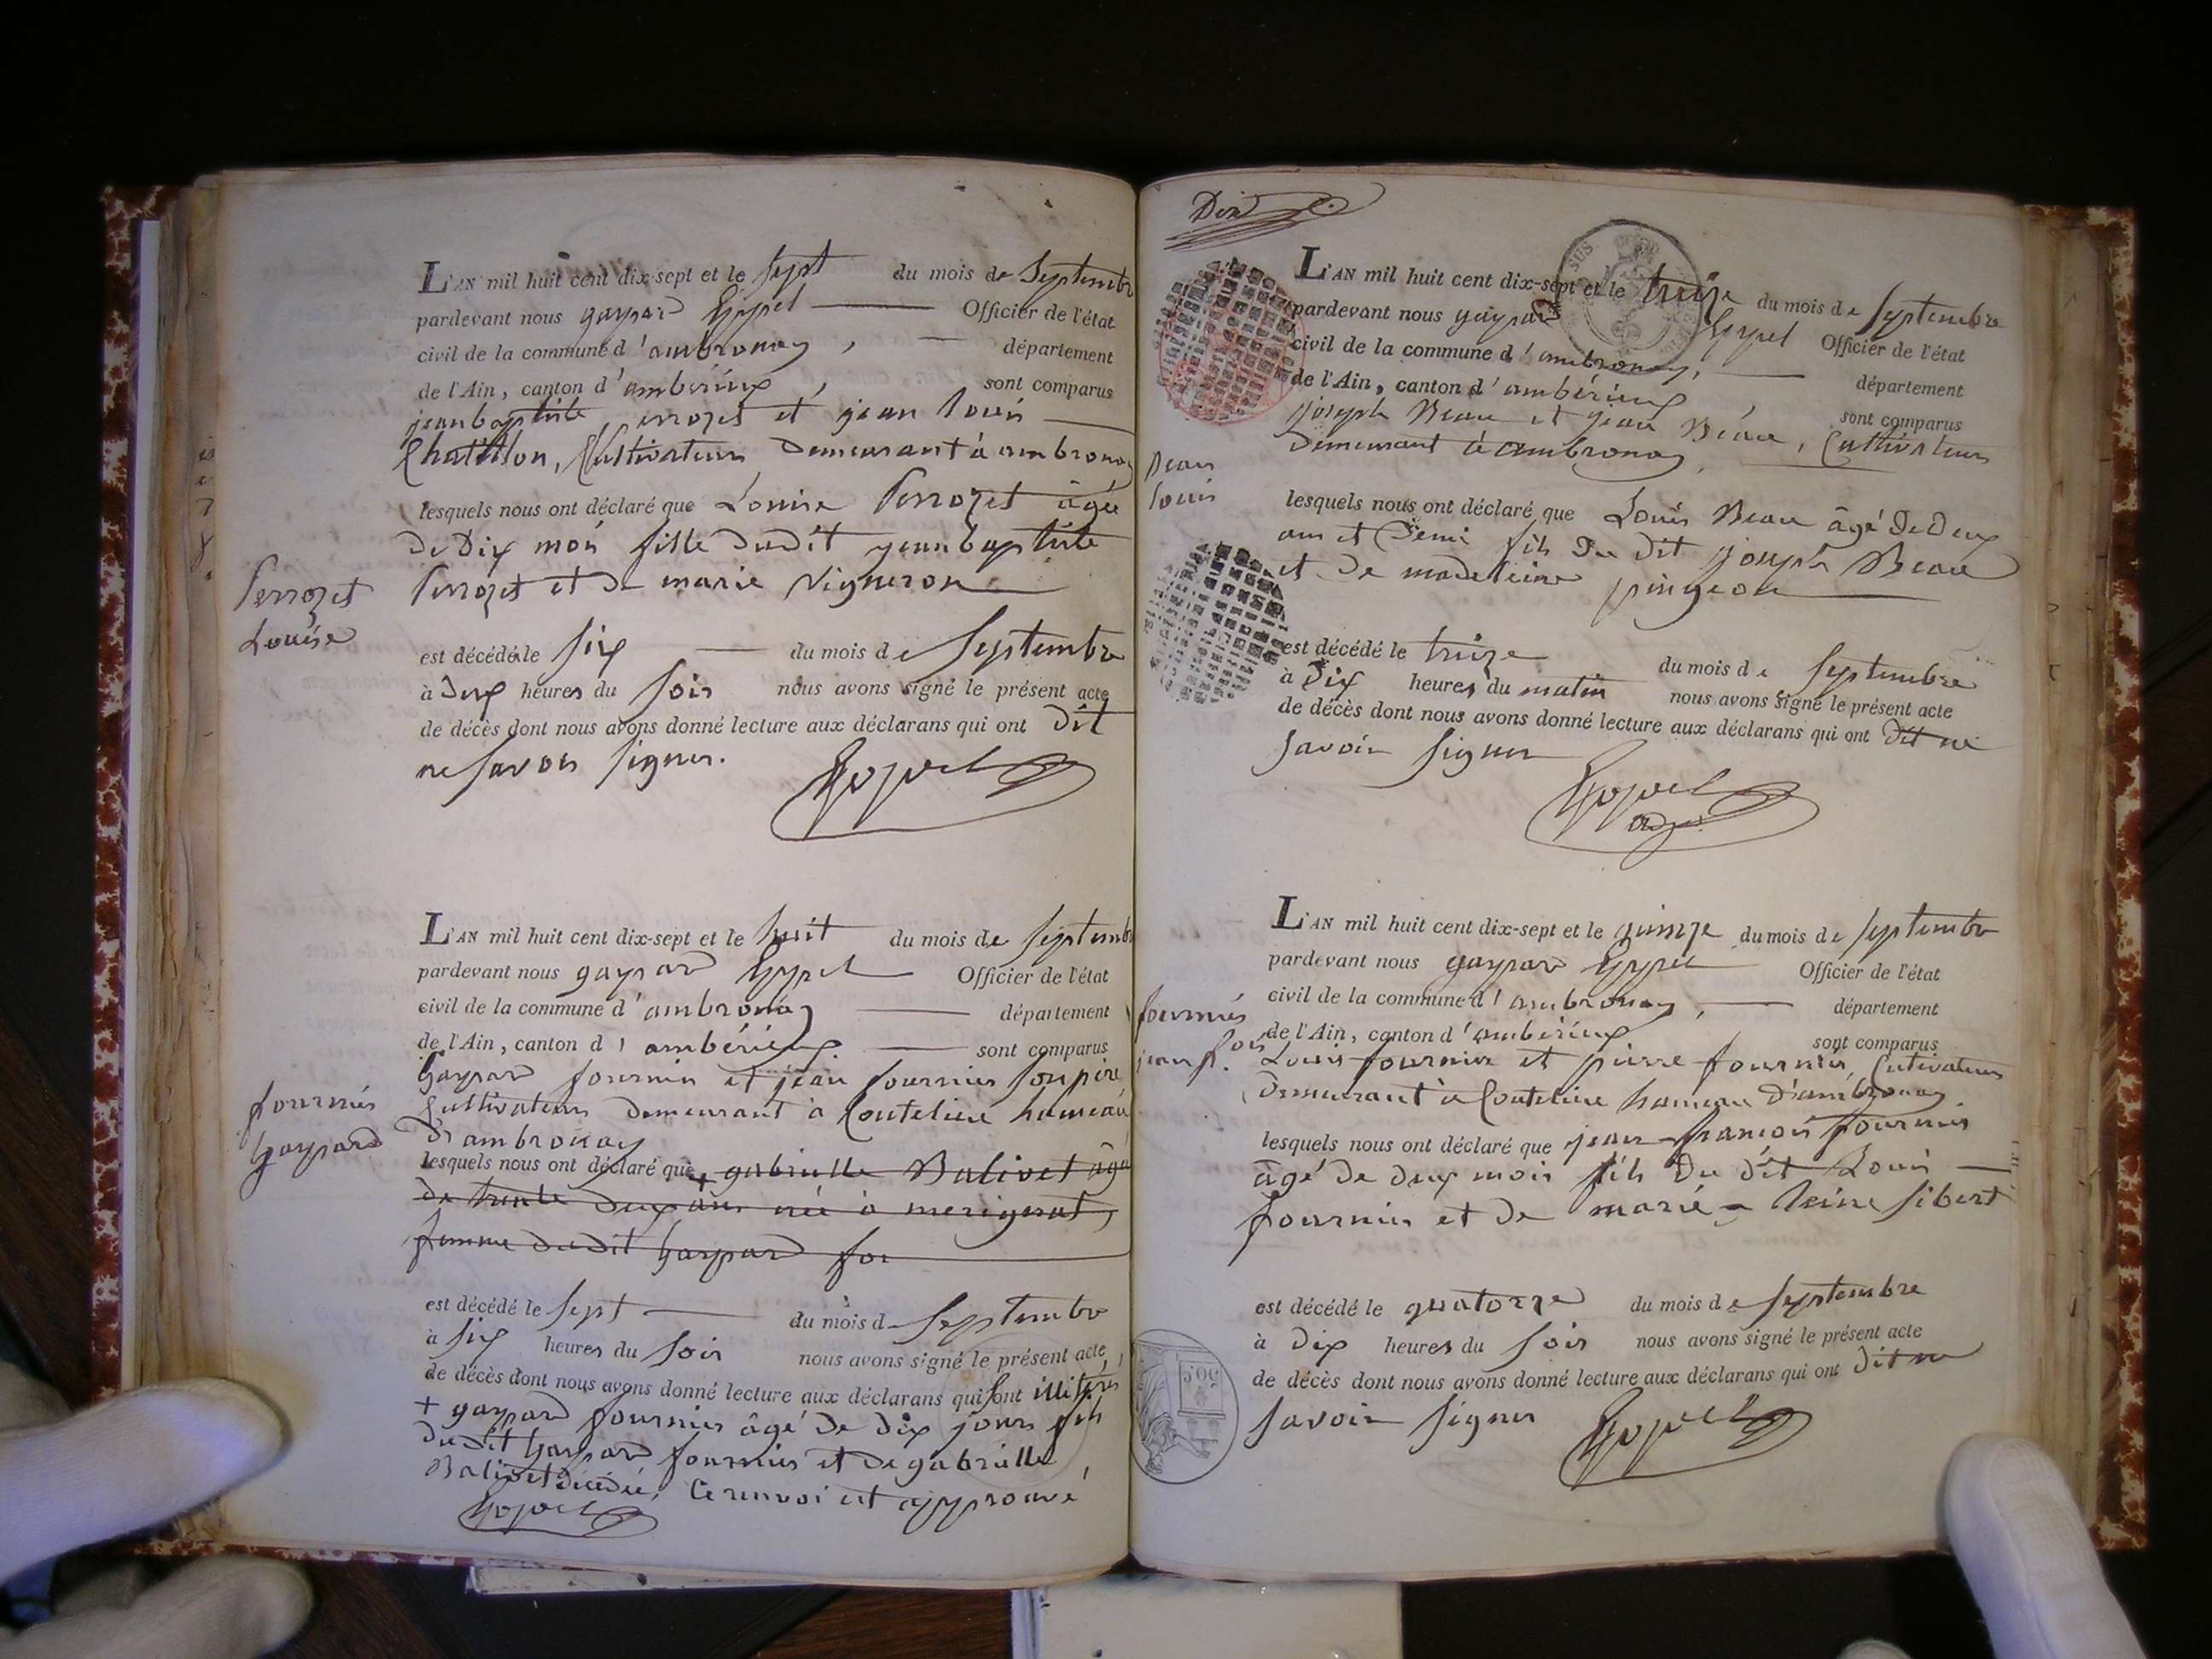 L'AN mil huit cent dix-sept et le sept du mois de Septembre
pardevant nous gaspard Goppel Officier de l'état
civil de la commune d'ambronay, département
de l'Ain, canton d'ambérieux, sont comparus
jean baptiste perrozet et jean louis
Chatillon, Cultivateurs demeurant à ambronay
lesquels nous ont déclaré que Louise Perrozet âgée
de Dix mois fille dudit jean baptiste
Perrozet et de marie vigneron
Perrozet
Louise
est décédée le six du mois de Septembre
à deux heures du soir nous avons signé le présent acte
de décès dont nous avons donné lecture aux déclarans qui ont dit
ne savoir signer.
Goppel
L'AN mil huit cent dix-sept et le huit du mois de septembre
pardevant nous gaspard Goppel Officier de l'état
civil de la commune d'ambronay département
de l'Ain, canton d'ambérieux. sont comparus
Gaspard fournier et jean fournier son père
Cultivateurs demeurant à Coutelieu hameau
D'ambronay
fournier
Gaspard
lesquels nous ont déclaré que + gabrielle Balivet âgée
de trente deux ans née à merignat,
femme dudit Gaspard fou
est décédé le sept du mois d Septembre
à six heures du soir nous avons signé le présent acte
de décès dont nous avons donné lecture aux déclarans qui sont illiterés
+ gaspard fournier âgé de dix jours fils
dudit Gaspard fournier et de gabrielle
Balivet décédé, Ce renvoi est approuvé
Goppel
Dix
L'AN mil huit cent dix-sept et le treize du mois de Septembre
pardevant nous gaspard Goppel Officier de l'état
civil de la commune d'ambronay, département
de l'Ain, canton d'ambérieux, sont comparus
joseph Beau et jean Beau, Cultivateurs
Demeurant à ambronay,
Beau
Louis
lesquels nous ont déclaré que Louis Beau âgé de Deux
ans et Demi fils du dit joseph Beau
et de madeleine pingeon
est décédé le treize du mois de Septembre
à Dix heures du matin nous avons signé le présent acte
de décès dont nous avons donné lecture aux déclarans qui ont dit ne
savoir signer
Goppel
adj
L'AN mil huit cent dix-sept et le quinze du mois de septembre
pardevant nous gaspard Goppel Officier de l'état
civil de la commune d'ambronay, département
de l'Ain, canton d'ambérieux sont comparus
fournier
jean f.ois
Louis fournier et pierre fournier, Cultivateurs
Demeurant à Coutelieu hameau d'ambronay
lesquels nous ont déclaré que jean-francois fournier
âgé de deux mois fils du dit Louis
fournier et de marie-Reine sibert
est décédé le quatorze du mois de septembre
à dix heures du soir nous avons signé le présent acte
de décès dont nous avons donné lecture aux déclarans qui ont dit ne
savoir signer
Goppel
50 C